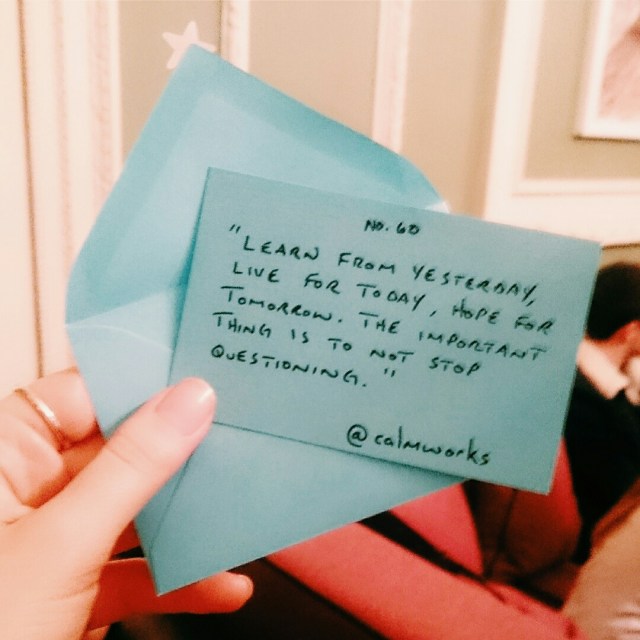 NO. 60
"LEARN FROM YESTERDAY,
LIVE FOR TODAY, HOPE FOR
TOMORROW. THE IMPORTANT
THING IS TO NOT STOP
QUESTIONING."
@calmworks